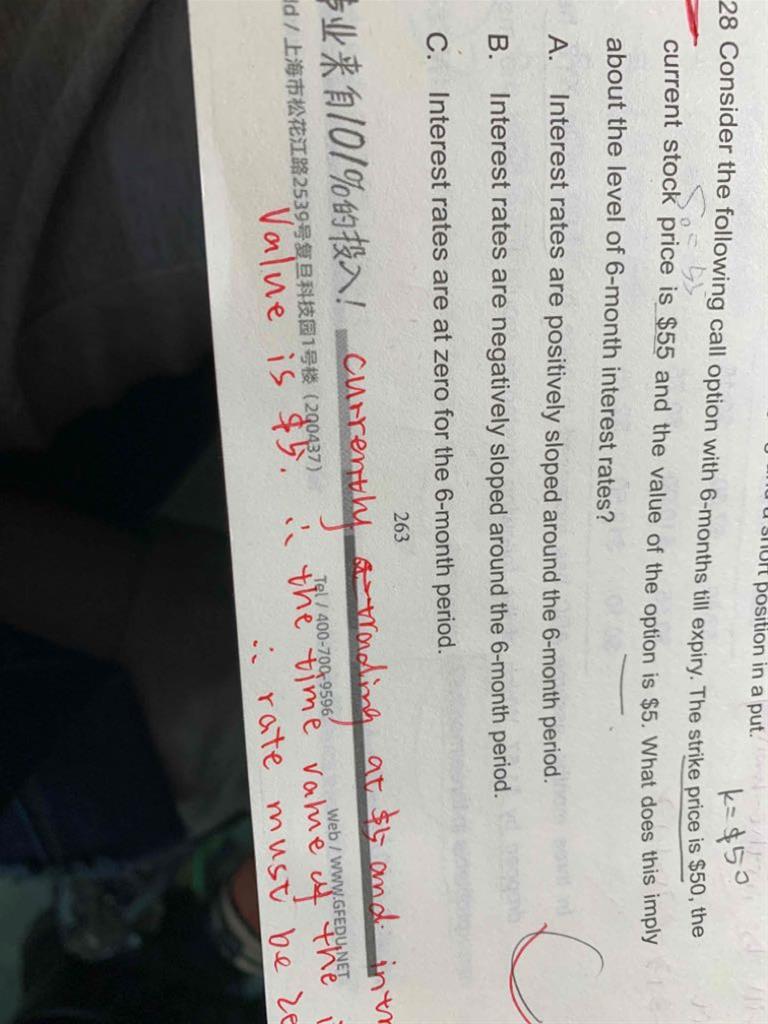 short position in a put.
K=$50
28 Consider the following call option with 6-months till expiry. The strike price is $50, the
S0=55
current stock price is $55 and the value of the option is $5. What does this imply
about the level of 6-month interest rates?
A. Interest rates are positively sloped around the 6-month period.
B. Interest rates are negatively sloped around the 6-month period.
C. Interest rates are at zero for the 6-month period.
C
263
currently trading at $5 and intr
业来自101%的投入!
ld / 上海市松花江路2539号复旦科技园1号楼 (200437)
Tel / 400-700-9596
Web / WWW.GFEDU.NET
value is $5. ∴ the time value of the
∴ rate must be ze